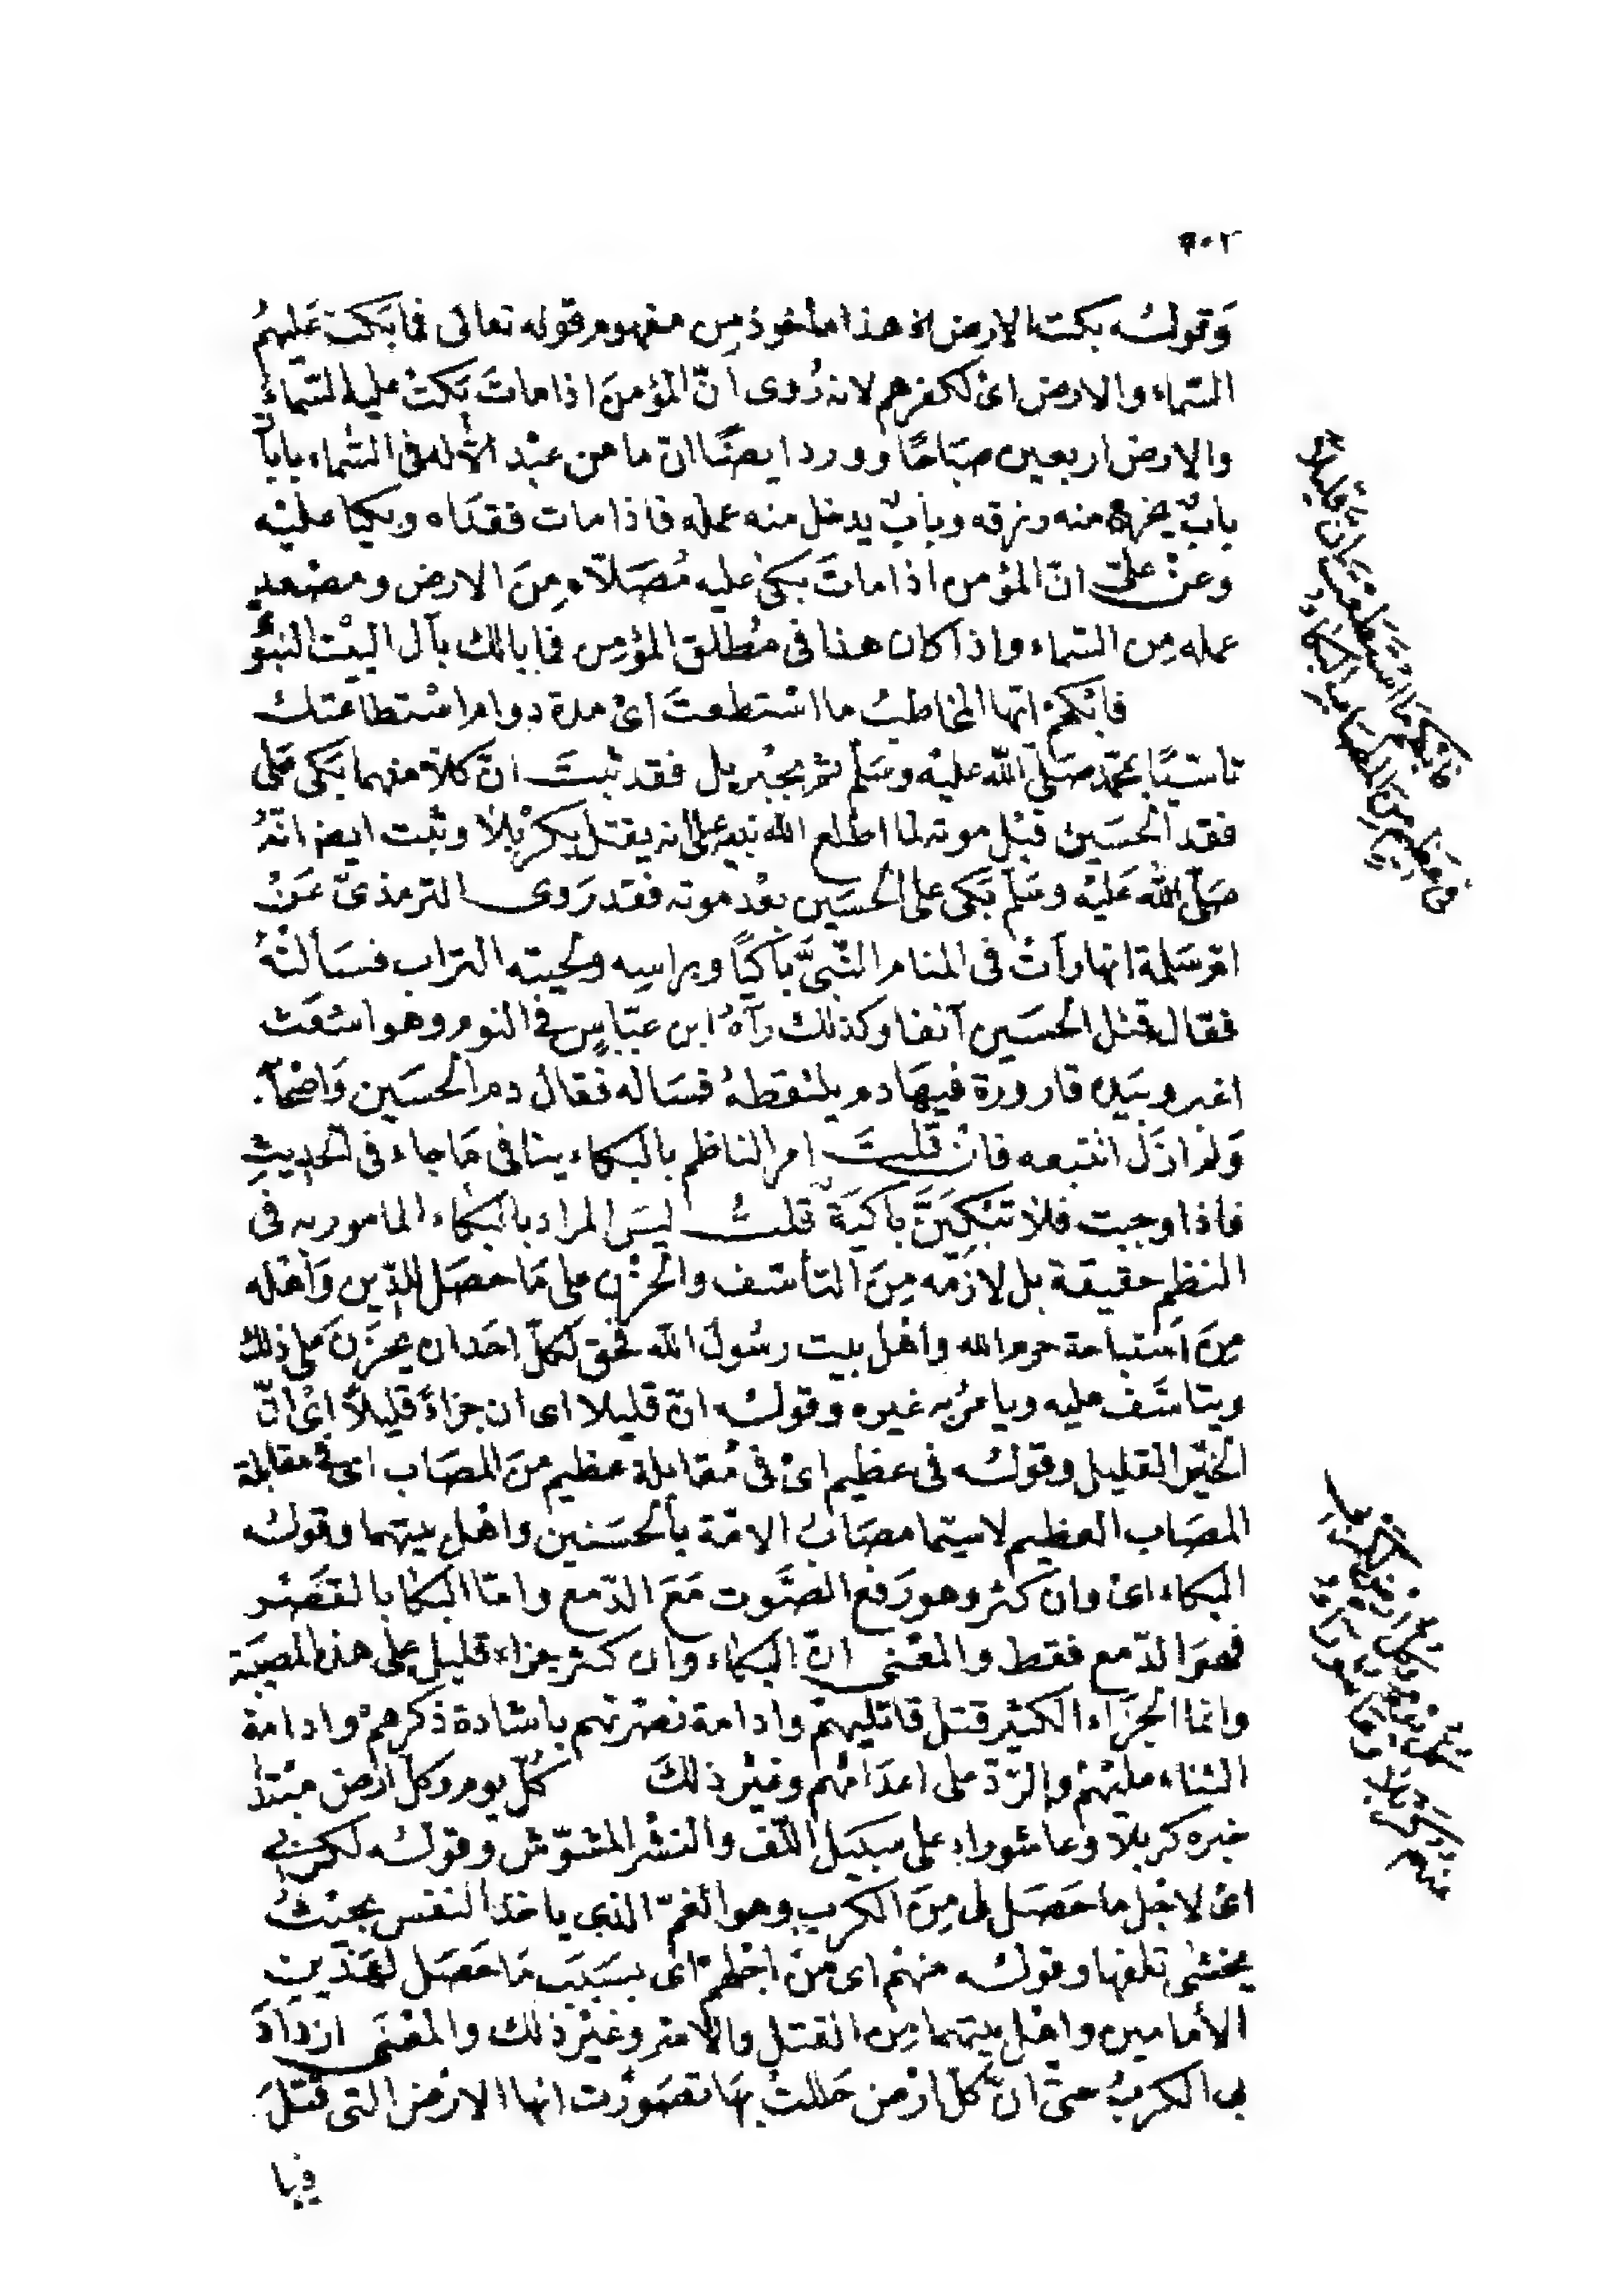 ٦٠٢
وَقولـُه بكت الارض الخ هذا مأخوذ مِن مفهوم قوله تعالى فمابَكت عَليهمُ
السّماء والارض اىْ لكفرهم لانه رُوى انّ المؤمنَ اذا ماتَ بَكتْ عليه السّماءُ
والارض اربعين صَبَاحًا وورد ايضًا انّ ما من عبْد الّا له فى السّماء بابانِ
بابٌ يخرج منه رزقه وبابٌ يدخل منه عمله فاذا مات فقدَاه وبكيا عليْه
وعنْ علىّ انّ المؤمن اذا ماتَ بكىٰ عليه مُصَلّاه مِنَ الارض ومصْعد
عمله مِن السّماء واذا كان هذا فى مُطلق المؤمِن فما بالك بآل البيْت النبوُّ
فابْكهمْ ايّها المخاطبُ ما اسْتطعتَ اىْ مدة دوام اسْتطاعتك
تاسّيًا بمحمّد صَلىّ اللّه عليْه وسَلّم ثم بجبْريل فقد ثبتَ انّ كلّا منهما بَكى عَلى
فقد الحسَين قبْل موته لما اطلع اللّه نبيه على انه يقتل بكرْبلاْ وثبت ايضا انّهُ
صَلىّ اللّه عَليْه وسَلّم بَكى على الحسَين بعْد موته فقد رَوى الترمذىّ عَنْ
امّ سَلمة انها رأتْ فى المنام النّبىَّ باكيًا وبراسِه ولحيته التراب فسَألتْهُ
فقال قتل الحسَين آنفا وكذلك رآهُ ابن عبّاسٍ فى النوم وهو اشعَث
اغبر وبيَده قارورة فيهَا دم يلتقطهُ فسَاله فقال دم الحسَين وَاصْحابه
وَلم ازَلْ اتتبعه فانْ قلتَ امر الناظم بالبكاء ينافى مَاجاء فى الحديثِ
فاذا وجبت فلاْ تبْكِيَنَّ باكيَة قلتُ ليسَ المراد بالبكاء المامور به فى
النظم حقيقة بل لازمَه مِنَ التأسّف والحزْن على مَا حصَل للدّين وَأهْله
مِنَ اسْتباحة حرم اللّه واهْل بيت رسُول اللّه فحق لكلّ احَد ان يحزَنَ على ذلك
ويتاسَّف عليه ويامُر به غيره وقولـُه انّ قليلا اى ان جزاءً قليلًا اىْ انّ
الخيْر القليل وقولـُه فى عظيم اىْ فى مُقابلة عظيم منَ المصَاب اى فى مقابلة
المصَاب العظيم لاسيّما مصَابُ الامّة بالحسَنين واهْل بيتهما وقولـُه
البكاء اىْ وان كثر وهو رَفع الصَّوت مَعَ الدّمع وامّا البكا بالقصْر
فهوَ الدّمع فقط والمعْنى انّ البكاء وان كثر جزاء قليل على هذه المصيبَة
وانما الجزَاء الكثيْر قتل قاتليهمْ وادامة نصْرتهم باشادة ذكرهمْ وادامة
الثناء عليْهمْ والرّدّ على اعدَائهم وغيْر ذلكَ كُلّ يوم وكلّ ارْض مبْتدَا
خبره كربلا وعاشوراء على سَبيَل اللّف والنشْر المشوّش وقولـُه لكربى
اىْ لاجْل ما حَصَل لى مِنَ الكرب وهو الغمّ الذي ياخذ النفس بحيْثُ
يخشى تلفها وقولـُه منهمْ اى منْ اجْلهمْ اى بسَبَب مَا حَصَل لهذين
الأمامين واهْل بيتهما مِن القتل والاسْر وغيْر ذلك والمعْنى ازدادَ
بى الكربُ حتّى انّ كلّ ارْض حَللتُ بهَا تصَوّرت انها الارْض التى قتلَ
فيها
فابْكهم ما اسْتطعتَ انّ قليلاً
فى عَظيم منَ المصَاب البكاءُ
كلّ يوم وكلّ ارْض لكرْبى
منهم كربلا وعاشوراءُ